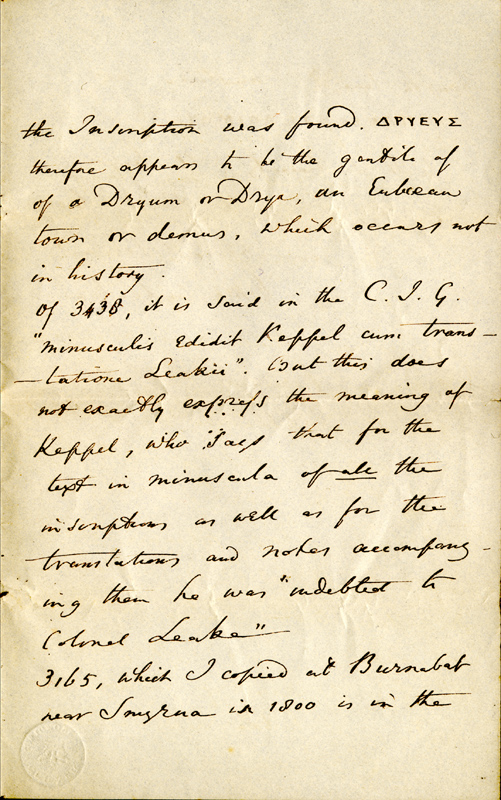 the Inscription was found. ΔΡΥΕΥΣ
therefore appears to be the gentile of
of a Dryum or Drya, an Eubœan
town or demus, which occurs not
in history.
Of 3438, it is said in the C. I. G.
"minusculis edidit Keppel cum trans-
-latione Leakii". But this does
not exactly express the meaning of
Keppel, who says that for the
text in minuscula of all the
inscriptions as well as for the
translations and notes accompany-
ing them he was "indebted to
Colonel Leake"
3165, which I copied at Burnabat
near Smyrna in 1800 is in the